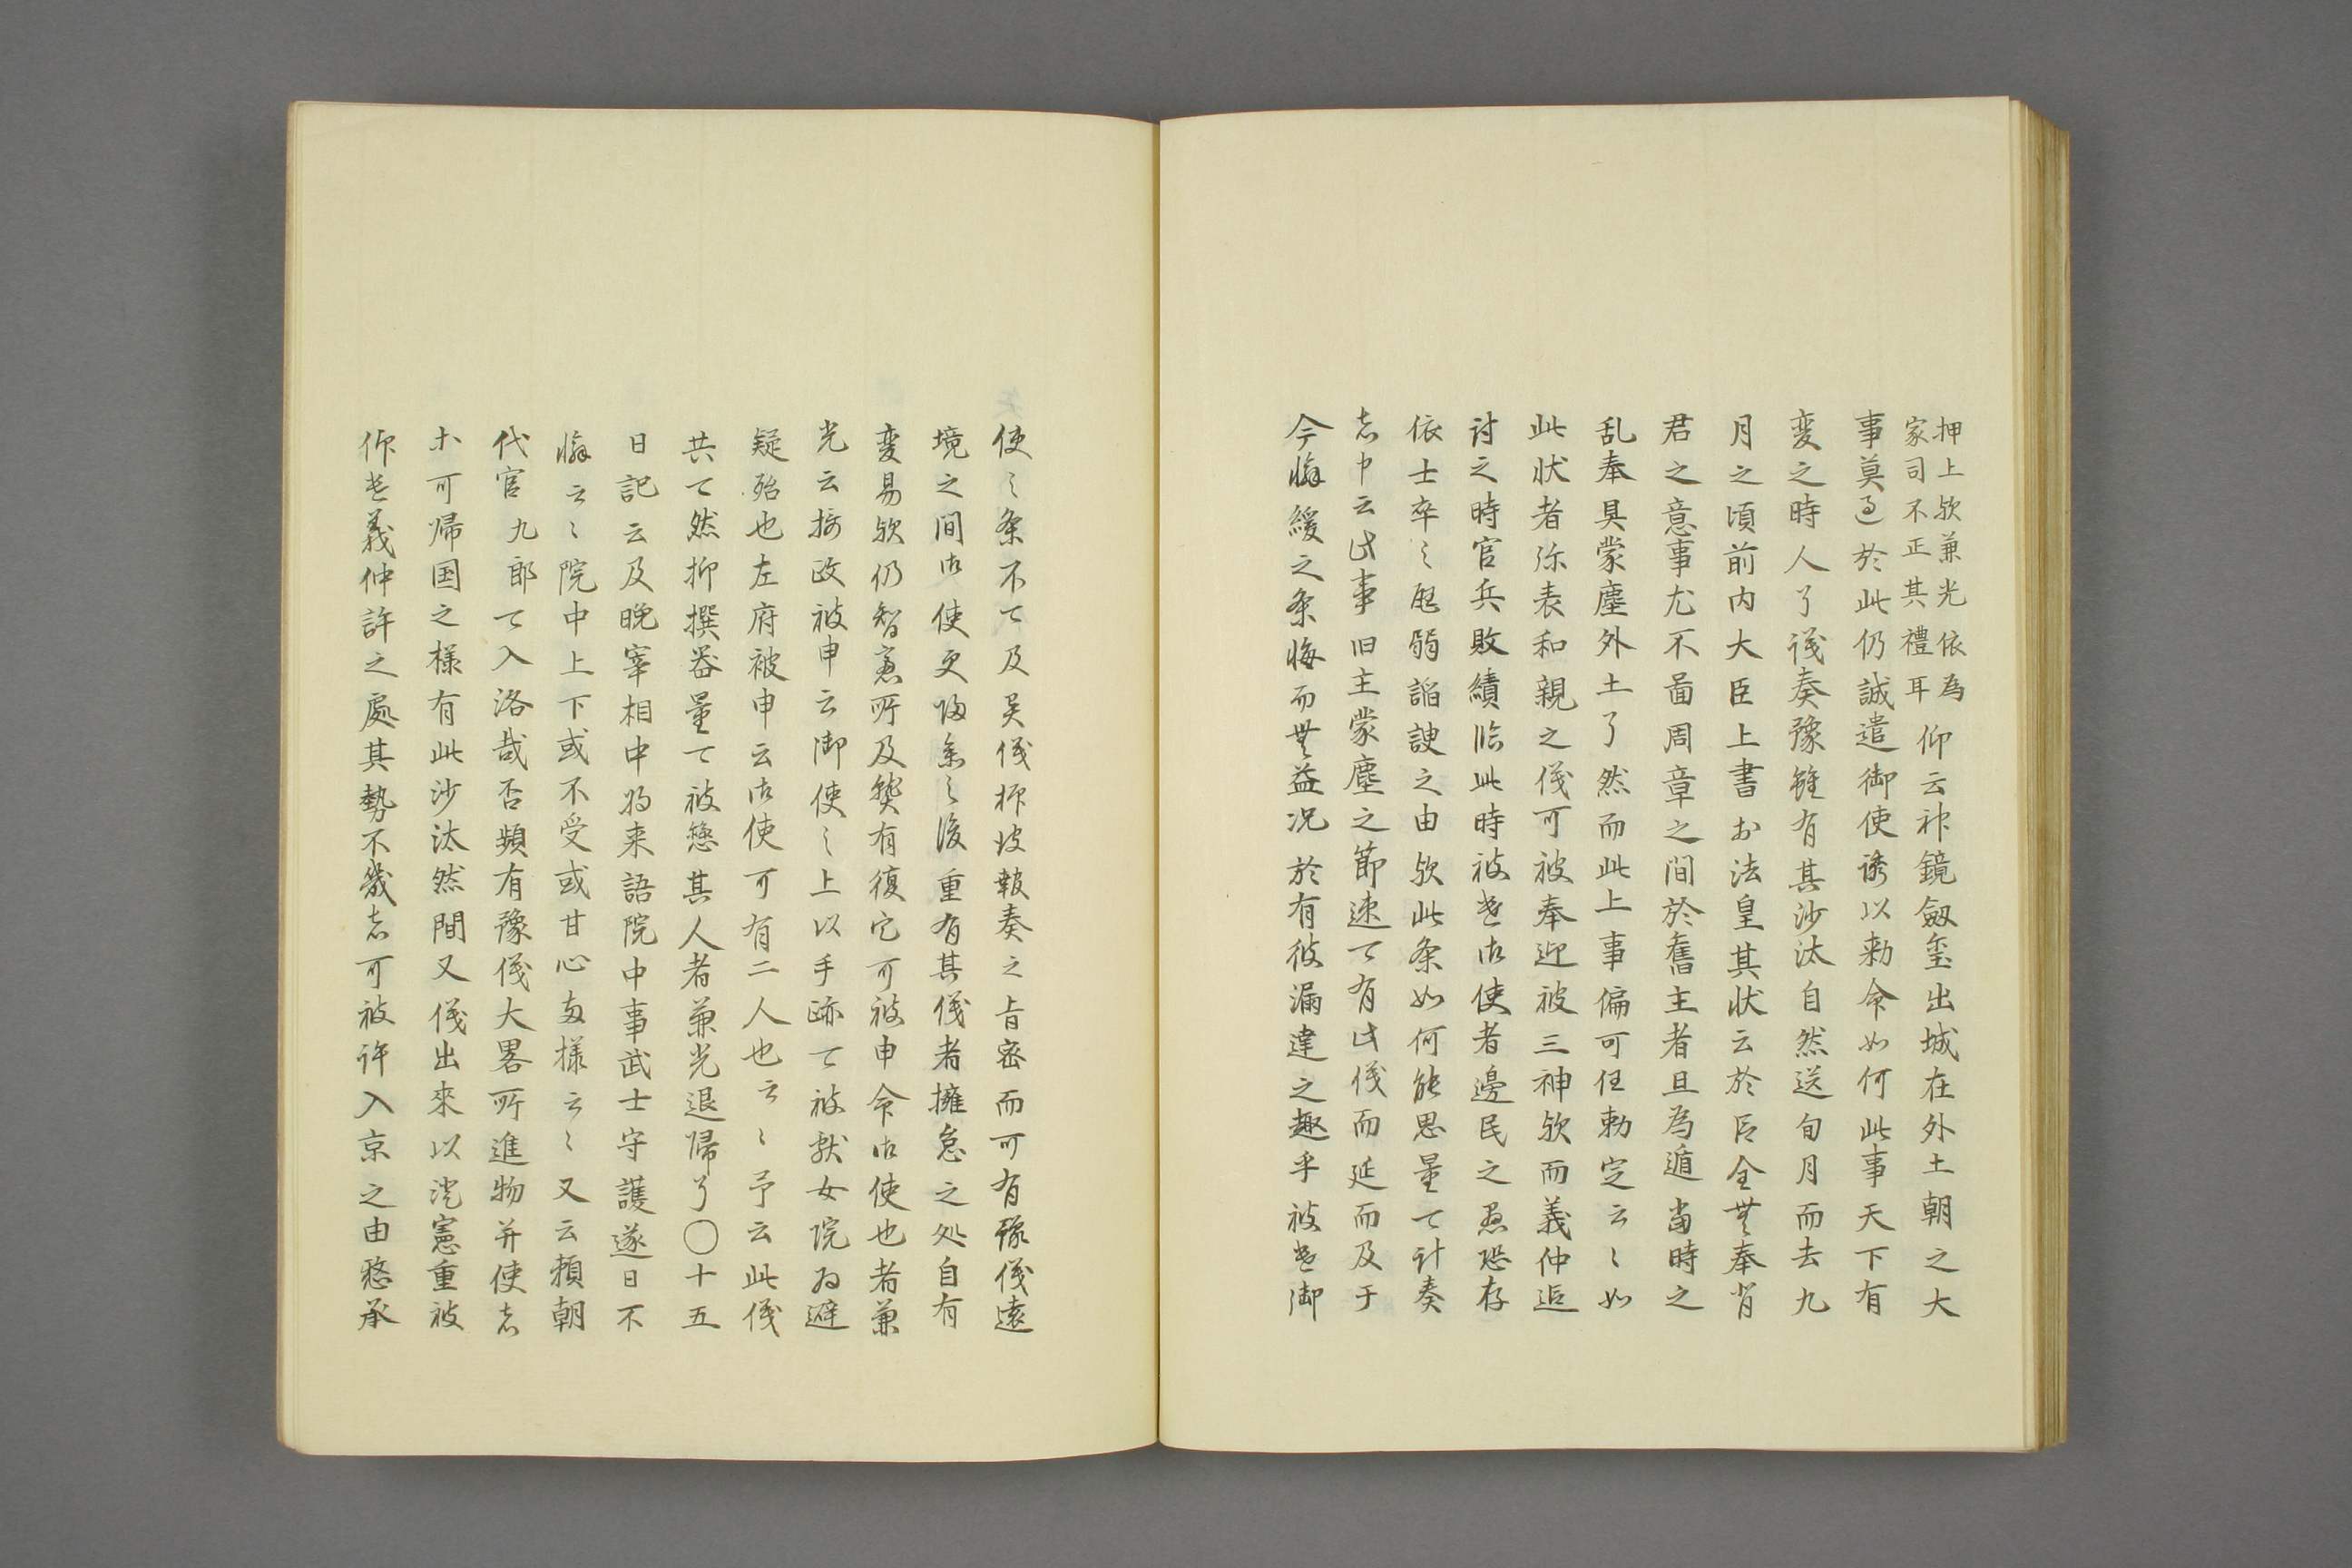 押上欤兼光依為
家司不正其禮耳
仰云神鏡劔玺出城在外土朝之大
事莫過於此仍誠遣御使誘以勅命如何此事天下有
変之時人了議奏豫雖有其沙汰自然送旬月而去九
月之頃前内大臣上書於法皇其状云於臣全無奉背
君之意事尤不啚周章之間於舊主者旦為遁當時之
乱奉具蒙塵外土了然而此上事偏可任勅定云〻如
此状者弥表和親之儀可被奉迎被三神欤而義仲追
討之時官兵敗績臨此時被遣御使者邊民之愚恐存
依士卒之尫弱諂諛之由欤此条如何能思量可計奏
者申云此事旧主蒙塵之節速可有此儀而延而及于
今懈緩之条悔而無益况於有彼漏達之趣乎被遣御
使之条不可及异儀抑彼報奏之旨密而可有豫儀遠
境之間御使更歸参之後重有其儀者擁怠之処自有
変易欤仍智慮所及興有復它可被申含御使也者兼
光云摂政被申云御使之上以手跡可被献女院為避
疑殆也左府被申云御使可有二人也云〻予云此儀
共可然抑撰器量可被慥其人者兼光退帰了〇十五
日記云及晩宰相中将来語院中事武士守護逐日不
懈云〻院中上下或不受或甘心両様云〻又云頼朝
代官九郎可入洛哉否頻有豫儀大畧所進物并使者
等可帰国之様有此沙汰然間又儀出來以澄憲重被
仰遣義仲許之處其勢不幾者可被許入京之由愁承